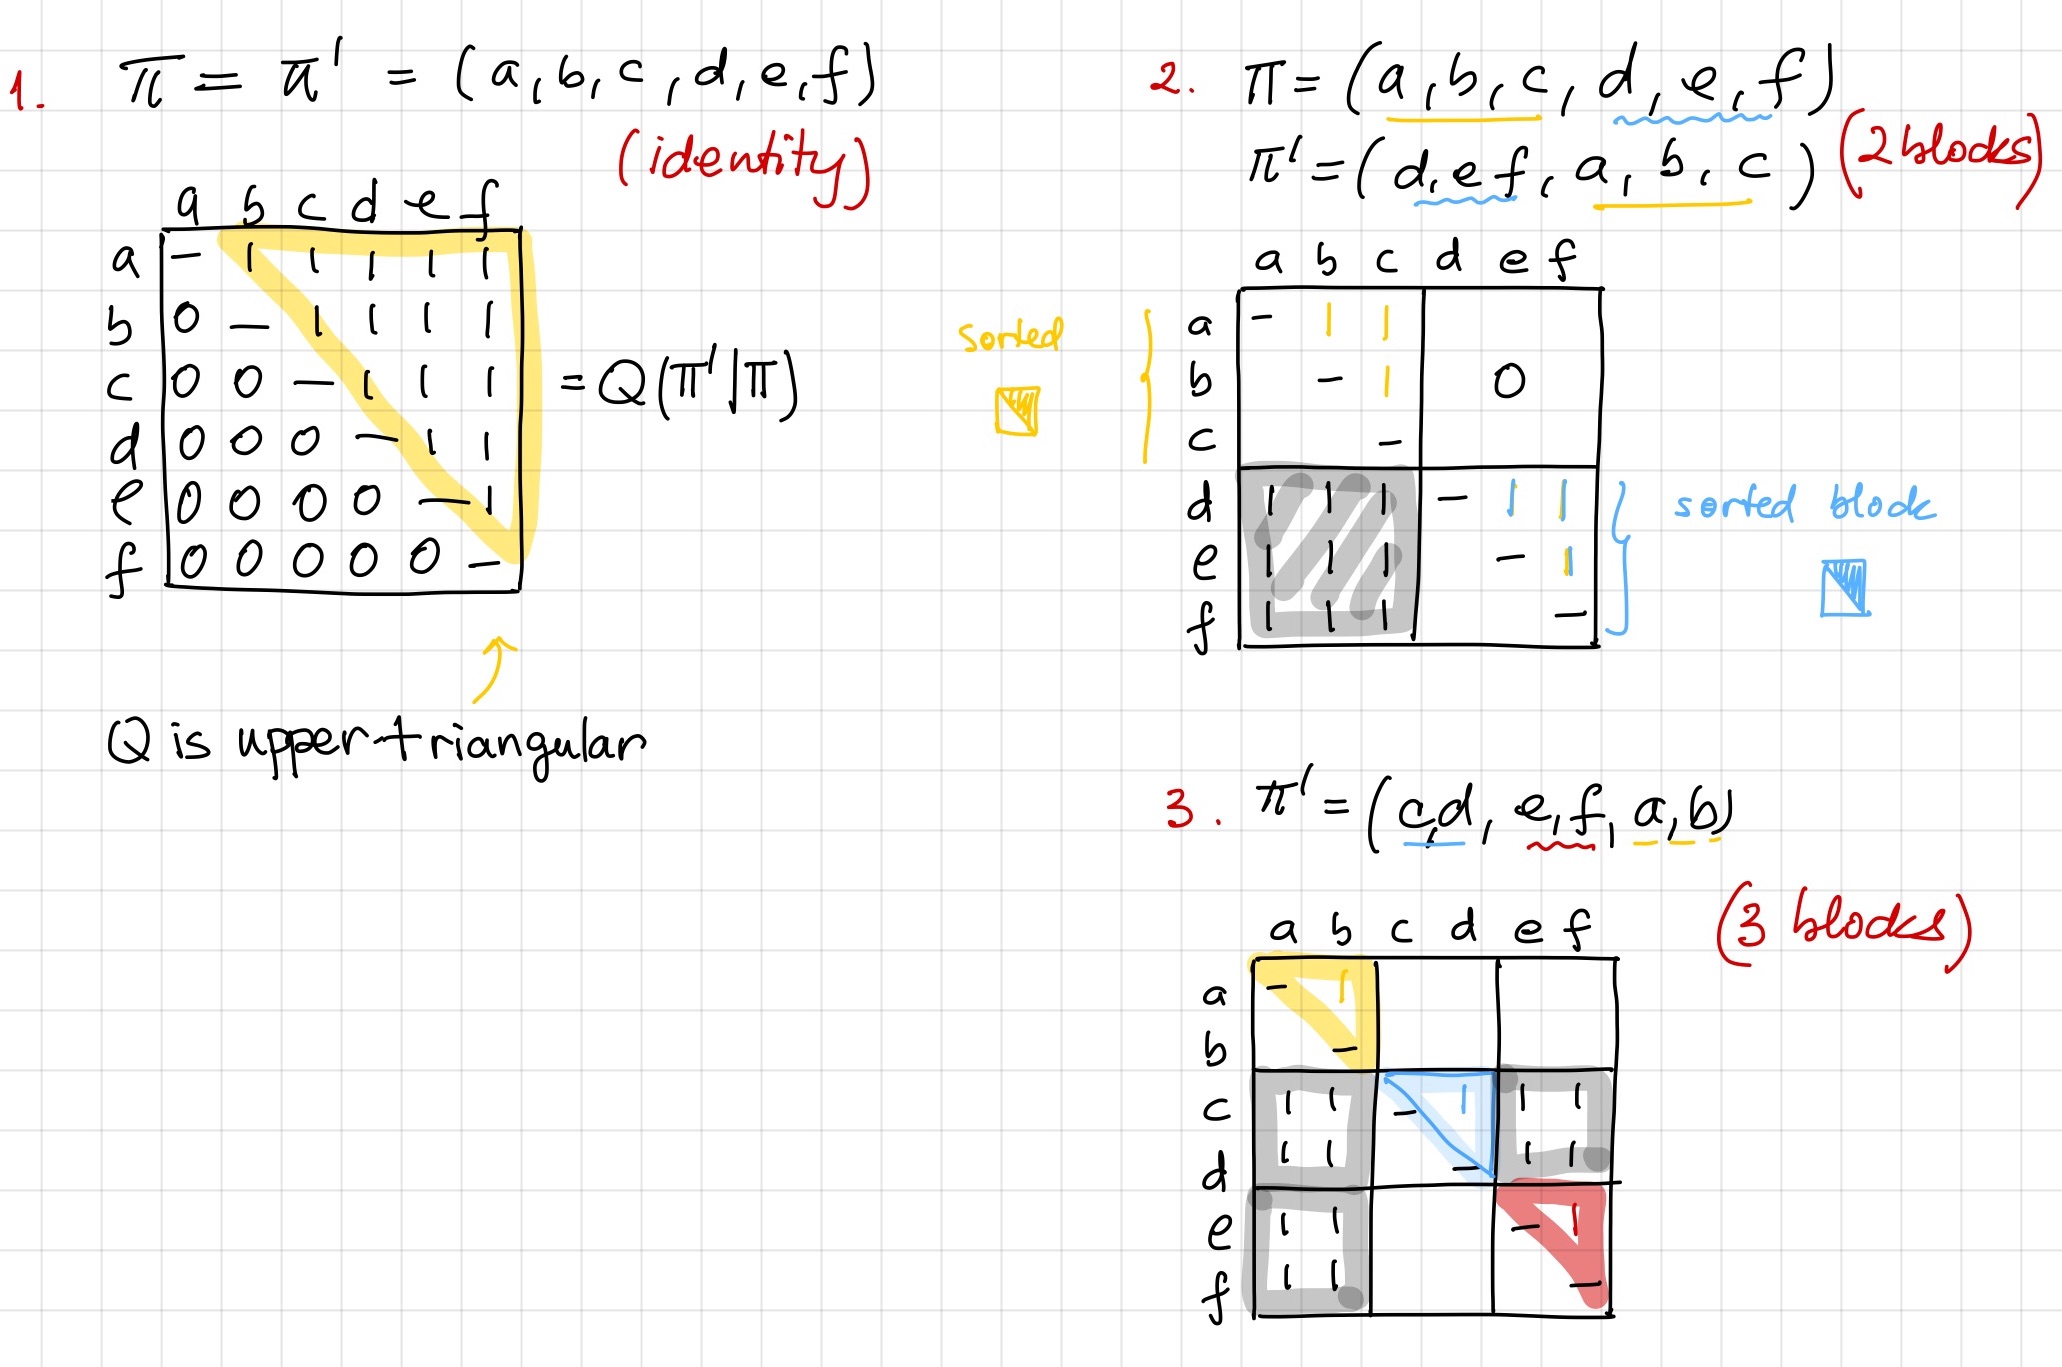 1. π = π' = (a, b, c, d, e, f)
(identity)
a b c d e f
a – 1 1 1 1 1
b 0 – 1 1 1 1
c 0 0 – 1 1 1
d 0 0 0 – 1 1
e 0 0 0 0 – 1
f 0 0 0 0 0 –
= Q(π'|π)
Q is upper-triangular
2. π = (a, b, c, d, e, f)
π' = (d, e f, a, b, c) (2 blocks)
a b c d e f
a – 1 1
b – 1 0
c –
d 1 1 1 – 1 1
e 1 1 1 – 1
f 1 1 1 –
sorted
sorted block
3. π' = (c, d, e, f, a, b)
(3 blocks)
a b c d e f
a – 1
b –
c 1 1 – 1 1 1
d 1 1 – 1 1
e 1 1 – 1
f 1 1 –